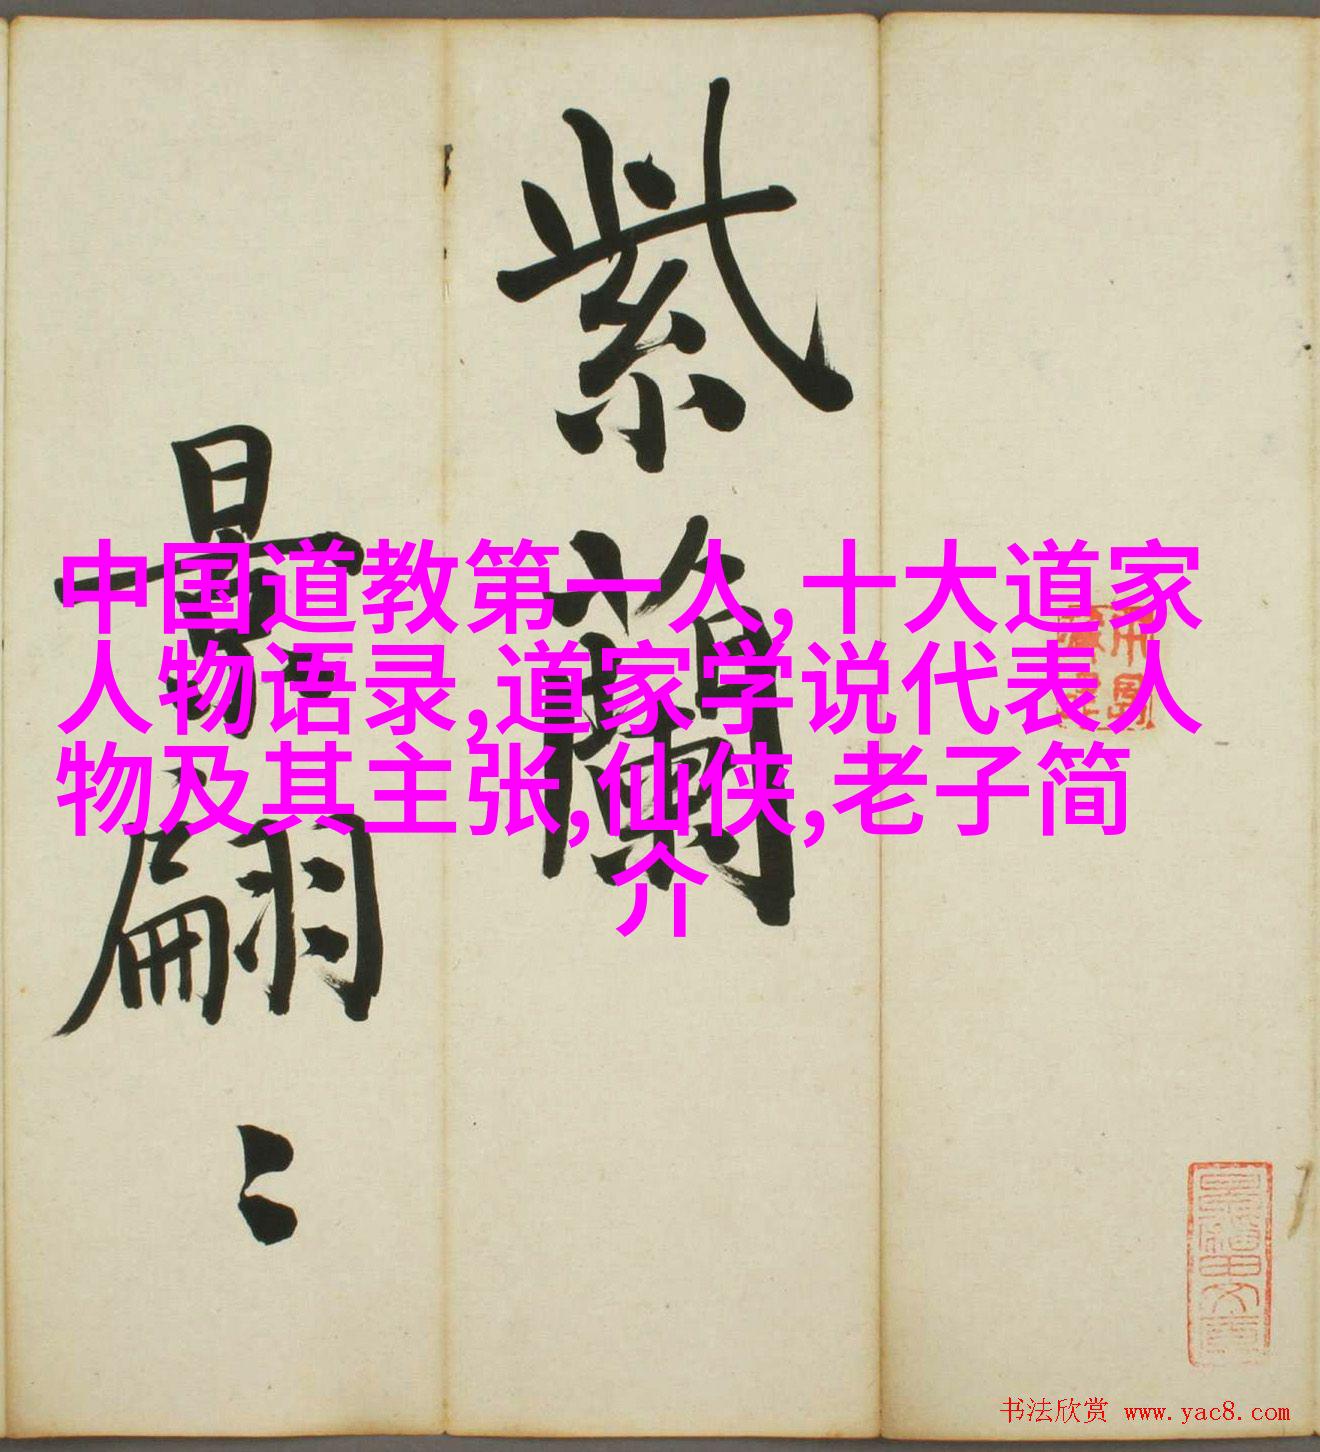 紫蘭
暮翩
中国道教第一人,十大道家
人物语录,道家学说代表人
物及其主张,仙侠,老子简
介
书法欣赏 www.yac8.com